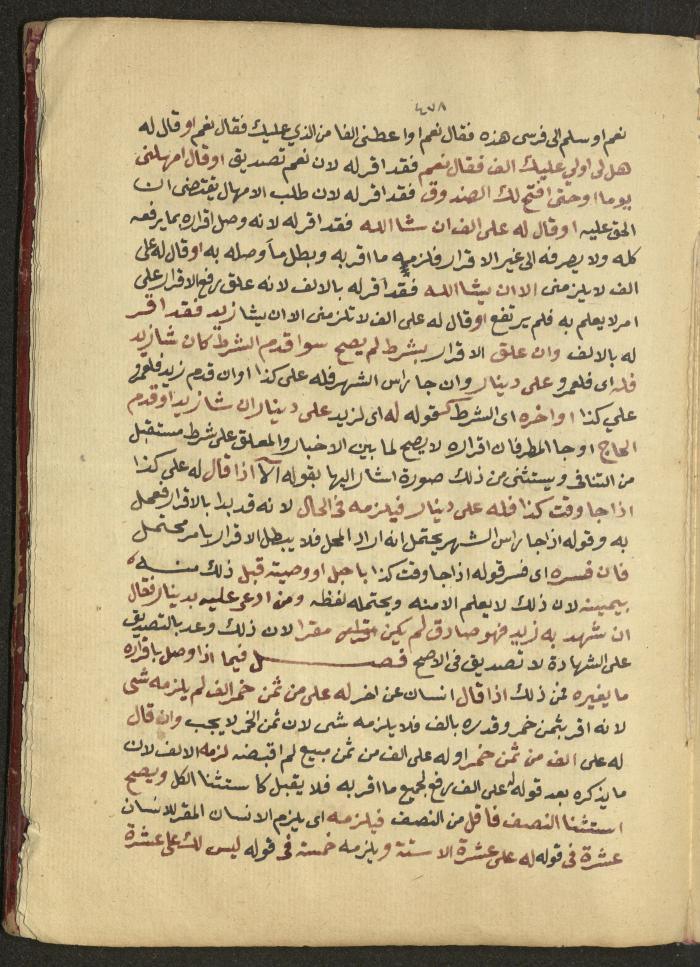 ٤٥٨
نعم او سلم الى فرسى هذه فقال نعم او اعطنى الفا من الذي عليك فقال نعم او قال له
هل لى اولي عليك الف فقال نعم فقد اقر له لان نعم تصديق او قال امهلنى
يوما او حتى افتح لك الصندوق فقد اقر له لان طلب الامهال يقتضى ان
الحق عليه او قال له على الف ان شا الله فقد اقر له لانه وصل اقراره بما يرفعه
كله ولا يصرفه الى غير الاقرار فلزمه ما اقر به وبطل ما وصله به او قال له على
الف لا يلزمنى الا ان يشا الله فقد اقر له بالالف لانه علق رفع الاقرار على
امر لا يعلم به فلم يرتفع او قال له على الف لا تلزمنى الا ان يشا زيد فقد اقر
له بالالف وان علق الاقرار بشرط لم يصح سوا قدم الشرط كان شا زيد
فله اى فلعمرو على دينار وان جا راس الشهر فله على كذا او ان قدم زيد فلعمرو
علي كذا او اخره اى الشرط كقوله له اى لزيد على دينار ان شا زيد او قدم
الحاج او جا المطر فان اقراره لا يصح لما بين الاخبار والمعلق على شرط مستقبل
من التنافى ويستثنى من ذلك صورة اشار اليها بقوله الا اذا قال له على كذا
اذا جا وقت كذا فله على دينار فيلزمه فى الحال لانه قد بدا بالاقرار فعمل
به وقوله اذا جا راس الشهر يحتمل انه اراد المحل فلا يبطل الاقرار بامر محتمل
فان فسره اى فسر قوله اذا جا وقت كذا باجل او وصيته قبل ذلك منه
بيمينه لان ذلك لا يعلم الا منه ويحتمله لفظه ومن ادعى عليه بدينار فقال
ان شهد به زيد فهو صادق لم يكن مقرا لان ذلك وعد بالتصديق
على الشهادة لا تصديق فى الاصح فصل فيما اذا وصل باقراره
ما يغيره فمن ذلك اذا قال انسان عن اخر له على من ثمن خمر الف لم يلزمه شى
لانه اقر بثمن خمر وقدره بالف فلا يلزمه شى لان ثمن الخمر لا يجب وان قال
له على الف من ثمن خمر او له على الف من ثمن مبيع لم اقبضه لزمه الالف لان
ما يذكره بعد قوله له على الف رفع لجميع ما اقر به فلا يقبل كاستثنا الكل ويصح
استثنا النصف فاقل من النصف فيلزمه اى يلزم الانسان المقر للانسان
عشرة فى قوله له على عشرة الا ستة ويلزمه خمسة فى قوله ليس لك على عشرة